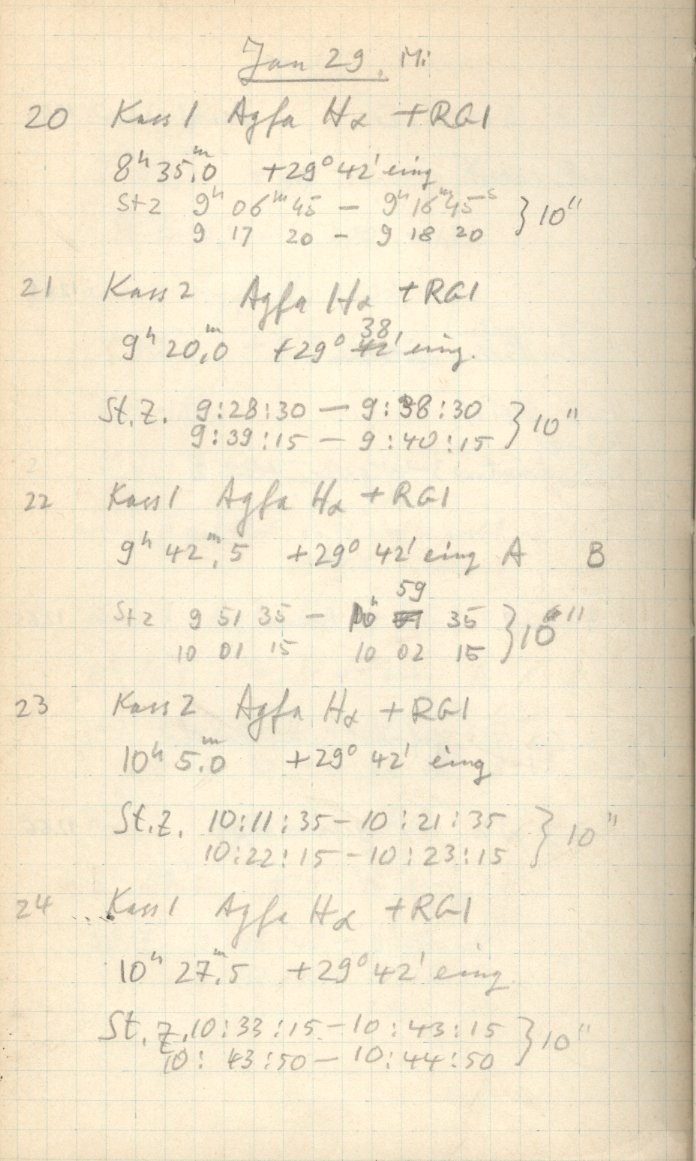 Jan 29. Mi
20 Kass 1 Agfa Hα +RG1
8h 35m,0 +29° 42' eing
Stz 9h 06m 45 – 9h 16m 45s } 10"
9 17 20 – 9 18 20
21 Kass 2 Agfa Hα +RG1
38
9h 20m,0 +29° 42' eing.
St.Z. 9:28:30 – 9:38:30 } 10"
9:39:15 – 9:40:15
22 Kass 1 Agfa Hα +RG1
9h 42m,5 +29° 42' eing A B
59
Stz 9 51 35 – 10h 35 } 10"
10 01 15 10 02 15
23 Kass 2 Agfa Hα +RG1
10h 5m,0 +29° 42' eing
St.Z. 10:11:35 – 10:21:35 } 10"
10:22:15 – 10:23:15
24 Kass 1 Agfa Hα +RG1
10h 27m,5 +29° 42' eing.
St.Z. 10:33:15 – 10:43:15 } 10"
10:43:50 – 10:44:50